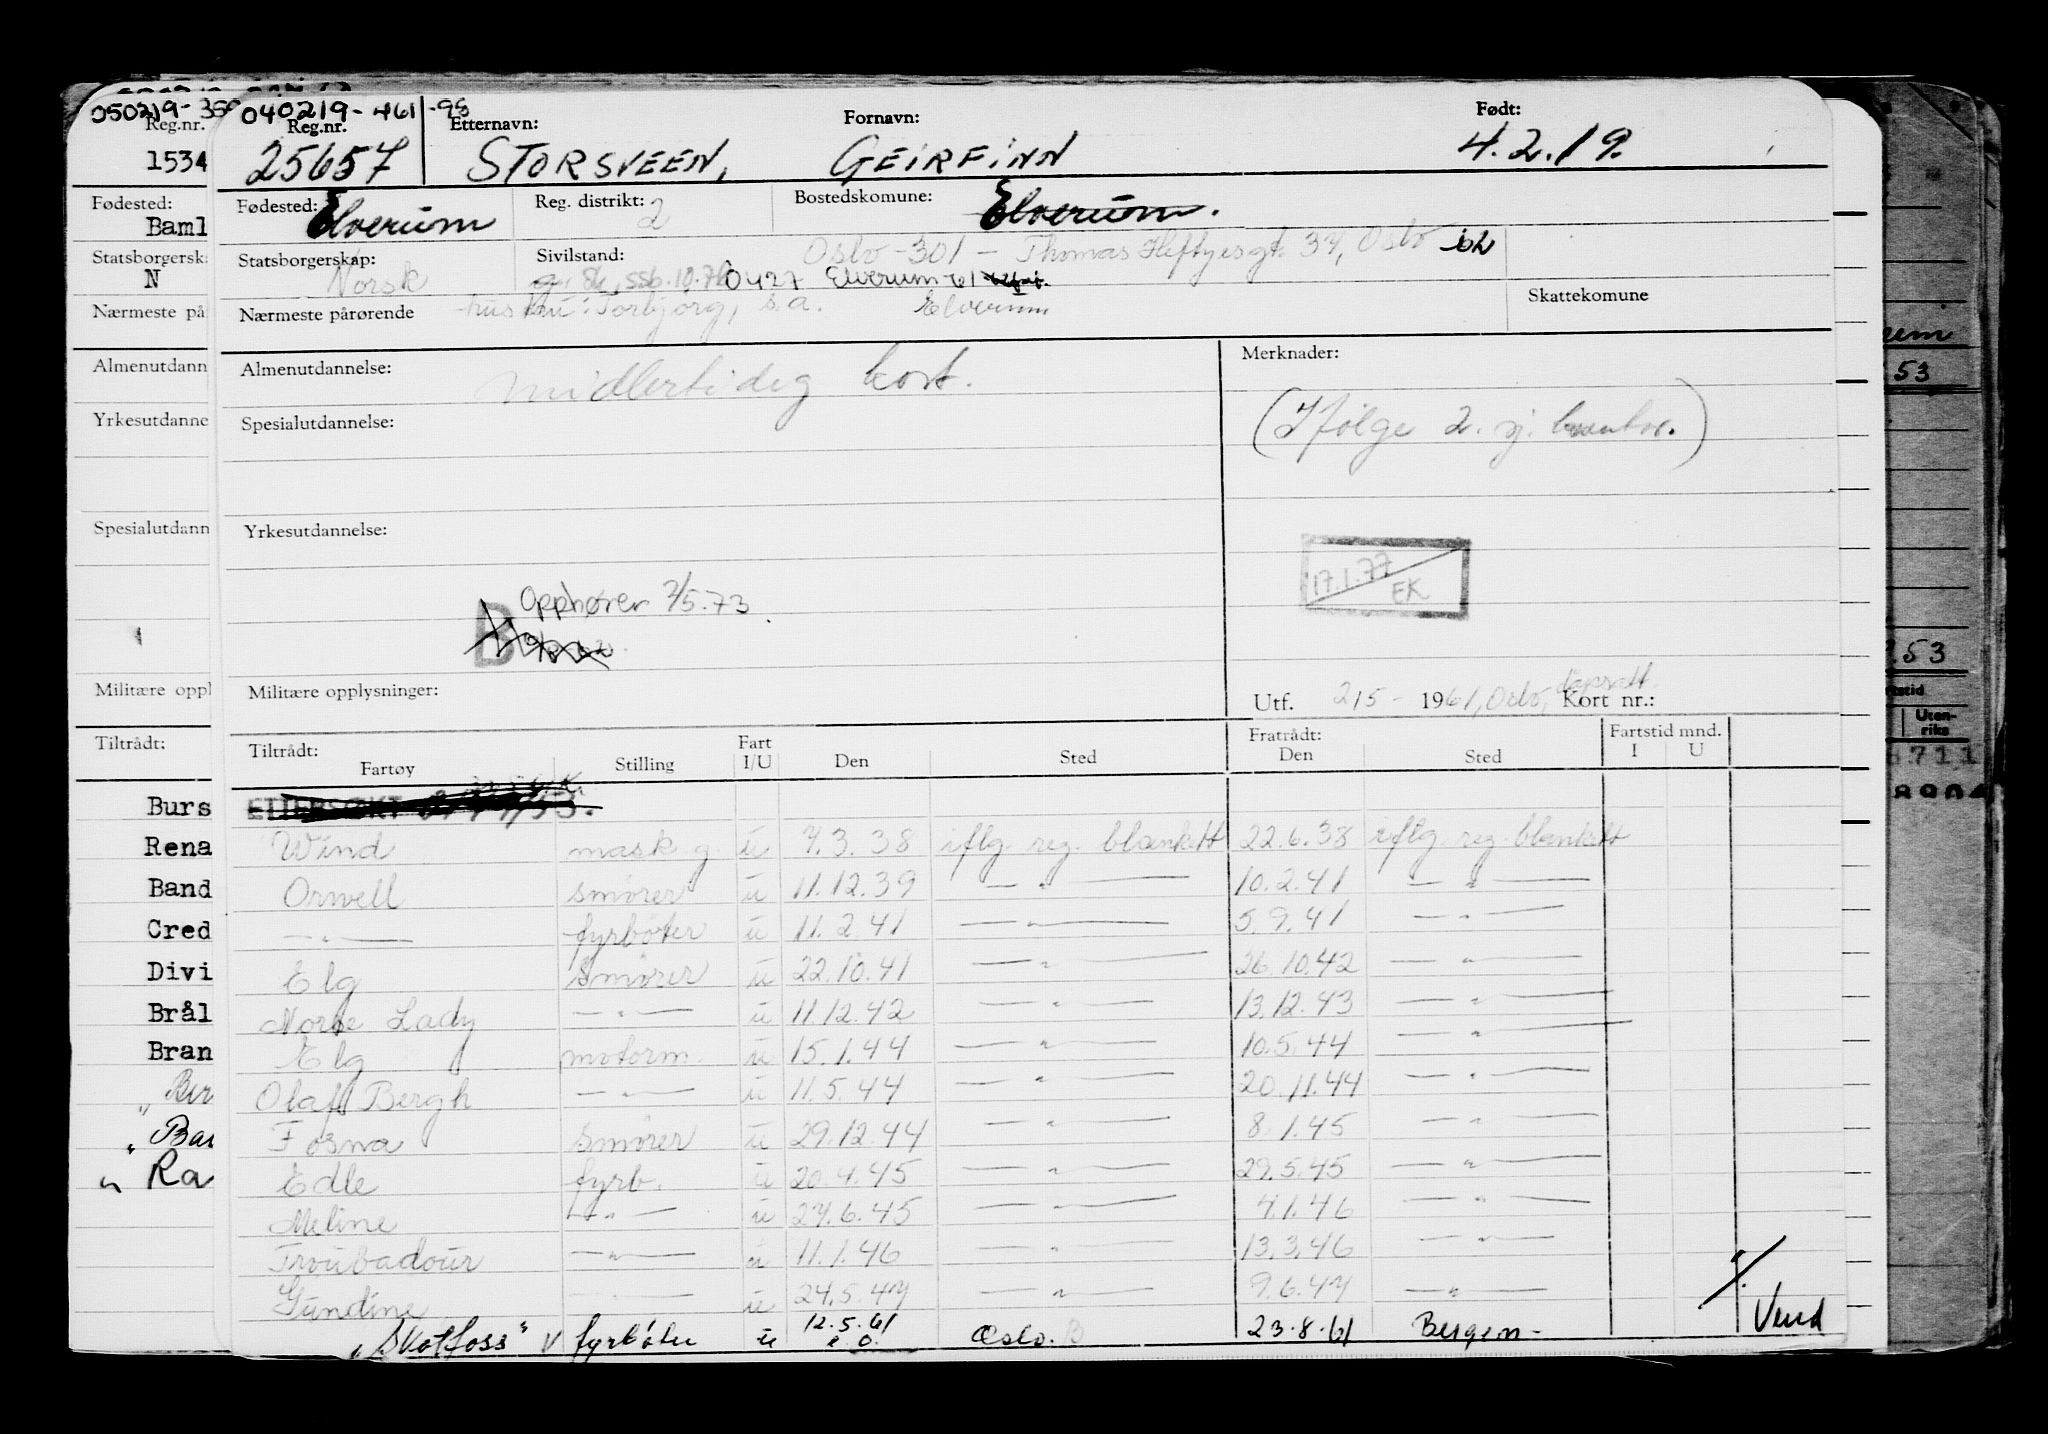 050219- 040219-461-98
Reg.nr. Reg.nr. Etternavn: Fornavn: Født:
1534 25657 STORSVEEN, GEIRFINN 4.2.19.
Fødested: Fødested: Elverum Reg. distrikt: 2 Bostedskomune: Elverum.
Baml
Statsborgersk: Statsborgerskap: Norsk Sivilstand: Oslo-301 - Thomas Heftyesgt. 37, Oslo
N 0427 Elverum-61
Nærmeste på Nærmeste pårørende hustru: Torbjørg, s.a. Elverum Skattekomune
Almenutdann Almenutdannelse: midlertidig kort. Merknader:
Yrkesutdanne Spesialutdannelse: (Ifølge 2. sj.
Spesialutdann Yrkesutdannelse:
17.1.77 EK
Opphører 2/5.73
B
Militære oppl Militære opplysninger: Utf. 2/5- 1961, Oslo, Kort nr.:
Tiltrådt: Tiltrådt: Fart Fratrådt: Fartstid mnd.
Fartøy Stilling I/U Den Sted Den Sted I U
Burs ETTERSØKT
Rena Wind mask g. u 7.3.38 iflg. reg. blankett 22.6.38 iflg. reg. blankett
Band Orwell smører u 11.12.39 —"— 10.2.41 —"—
Cred —"— fyrbøter u 11.2.41 —"— 5.9.41 —"—
Divi Elg smører u 22.10.41 —"— 26.10.42 —"—
Brål Norse Lady —"— u 11.12.42 —"— 13.12.43 —"—
Bran Elg motorm. u 15.1.44 —"— 10.5.44 —"—
Olaf Bergh —"— u 11.5.44 —"— 20.11.44 —"—
Fosna smører u 29.12.44 —"— 8.1.45 —"—
" Ra Edle fyrb. u 20.4.45 —"— 29.5.45 —"—
Meline —"— u 27.6.45 —"— 4.1.46 —"—
Troubadour —"— u 11.1.46 —"— 13.3.46 —"—
Gundine —"— u 24.5.47 —"— 9.6.47 —"—
"Skotfoss" v fyrbøter u 12.5.61 Oslo. B 23.8.61 Bergen- ./. Vend
53
.53
rtstid
Uten-
riks
711
8904